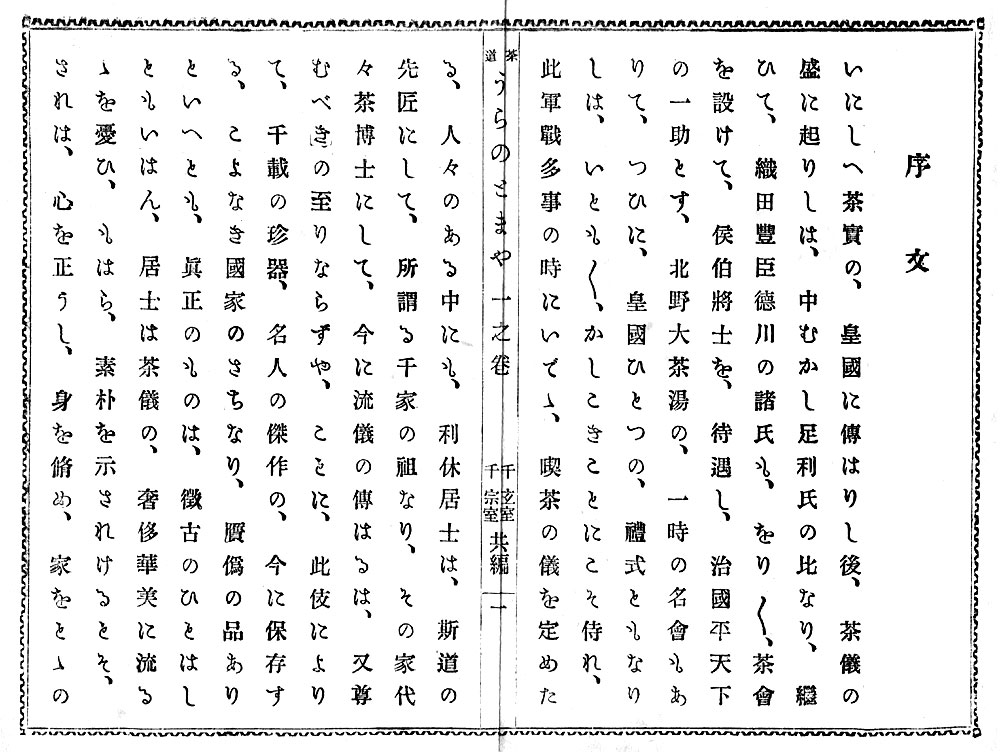 序文
いにしへ茶實の、皇國に傳はりし後、茶儀の
盛に起りしは、中むかし足利氏の比なり、繼
ひて、織田豐臣德川の諸氏も、をり〱、茶會
を設けて、侯伯將士を、待遇し、治國平天下
の一助とす、北野大茶湯の、一時の名會もあ
りて、つひに、皇國ひとつの、禮式ともなり
しは、いとも〱、かしこきことにこそ侍れ、
此軍戰多事の時にいでゝ、喫茶の儀を定めた
茶道うらのとまや一之卷 千玄室 千宗室 共編 一
る、人々のある中にも、利休居士は、斯道の
先匠にして、所謂る千家の祖なり、その家代
々茶博士にして、今に流儀の傳はるは、又尊
むべきの至りならずや、ことに、此伎により
て、千載の珍器、名人の傑作の、今に保存す
る、こよなき國家のさちなり、贋僞の品あり
といへとも、眞正のものは、徵古のひとはし
ともいはん、居士は茶儀の、奢侈華美に流る
ゝを憂ひ、もはら、素朴を示されけるとそ、
されは、心を正うし、身を脩め、家をとゝの